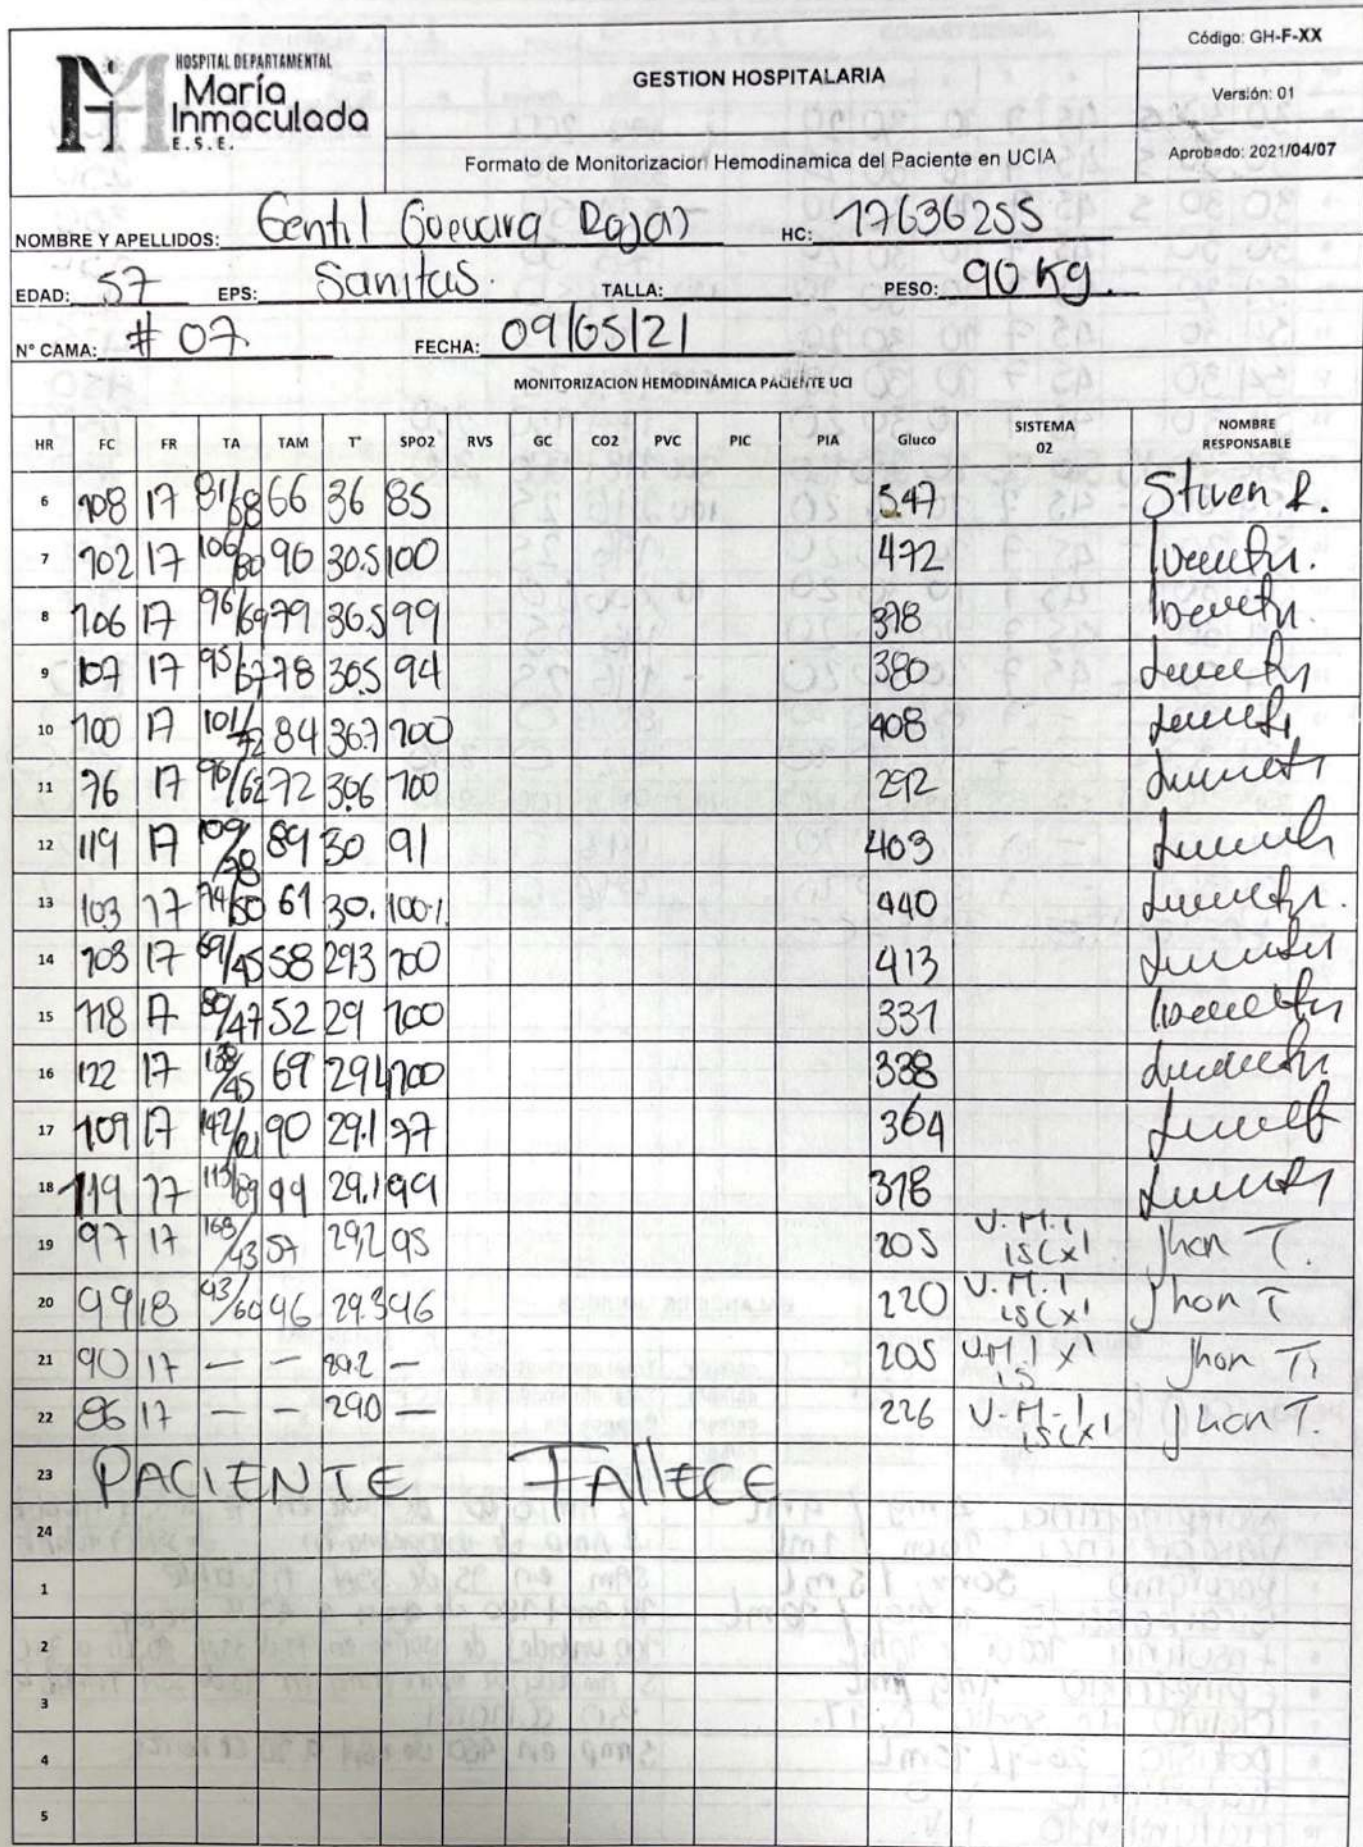 HOSPITAL DEPARTAMENTAL
María
Inmaculada
E.S.E.
GESTION HOSPITALARIA
Código: GH-F-XX
Versión: 01
Formato de Monitorización Hemodinamica del Paciente en UCIA
Aprobado: 2021/04/07
NOMBRE Y APELLIDOS: Gentil Guevara Rojas HC: 17636255
EDAD: 57 EPS: Sanitas. TALLA: PESO: 90 Kg.
N° CAMA: # 07 FECHA: 09/05/21
MONITORIZACION HEMODINÁMICA PACIENTE UCI
HR FC FR TA TAM T° SPO2 RVS GC CO2 PVC PIC PIA Gluco SISTEMA 02 NOMBRE RESPONSABLE
6 108 17 81/58 66 36 85 547 Stiven R.
7 102 17 106/80 90 30.5 100 472
8 106 17 96/69 79 36.5 99 378
9 107 17 95/67 78 30.5 94 380
10 100 17 101/72 84 36.7 100 408
11 76 17 90/62 72 30.6 100 292
12 119 17 109/78 89 30 91 403
13 103 17 74/50 61 30. 100% 440
14 103 17 69/45 58 29.3 100 413
15 118 17 80/47 52 29 100 331
16 122 17 138/45 69 29.1 100 338
17 109 17 142/ 90 29.1 97 364
18 119 17 113/89 99 29.1 99 378
19 97 17 168/43 57 29,2 95 205 V.M.I 15(x' Jhon T.
20 99 18 93/60 96 29.3 96 220 V.M.I 15(x' Jhon T
21 90 17 — — 29.2 — 205 V.M.I x' 15 Jhon T.
22 86 17 — — 29.0 — 226 V.M.I 15(x' Jhon T.
23 PACIENTE FAllECE
24
1
2
3
4
5